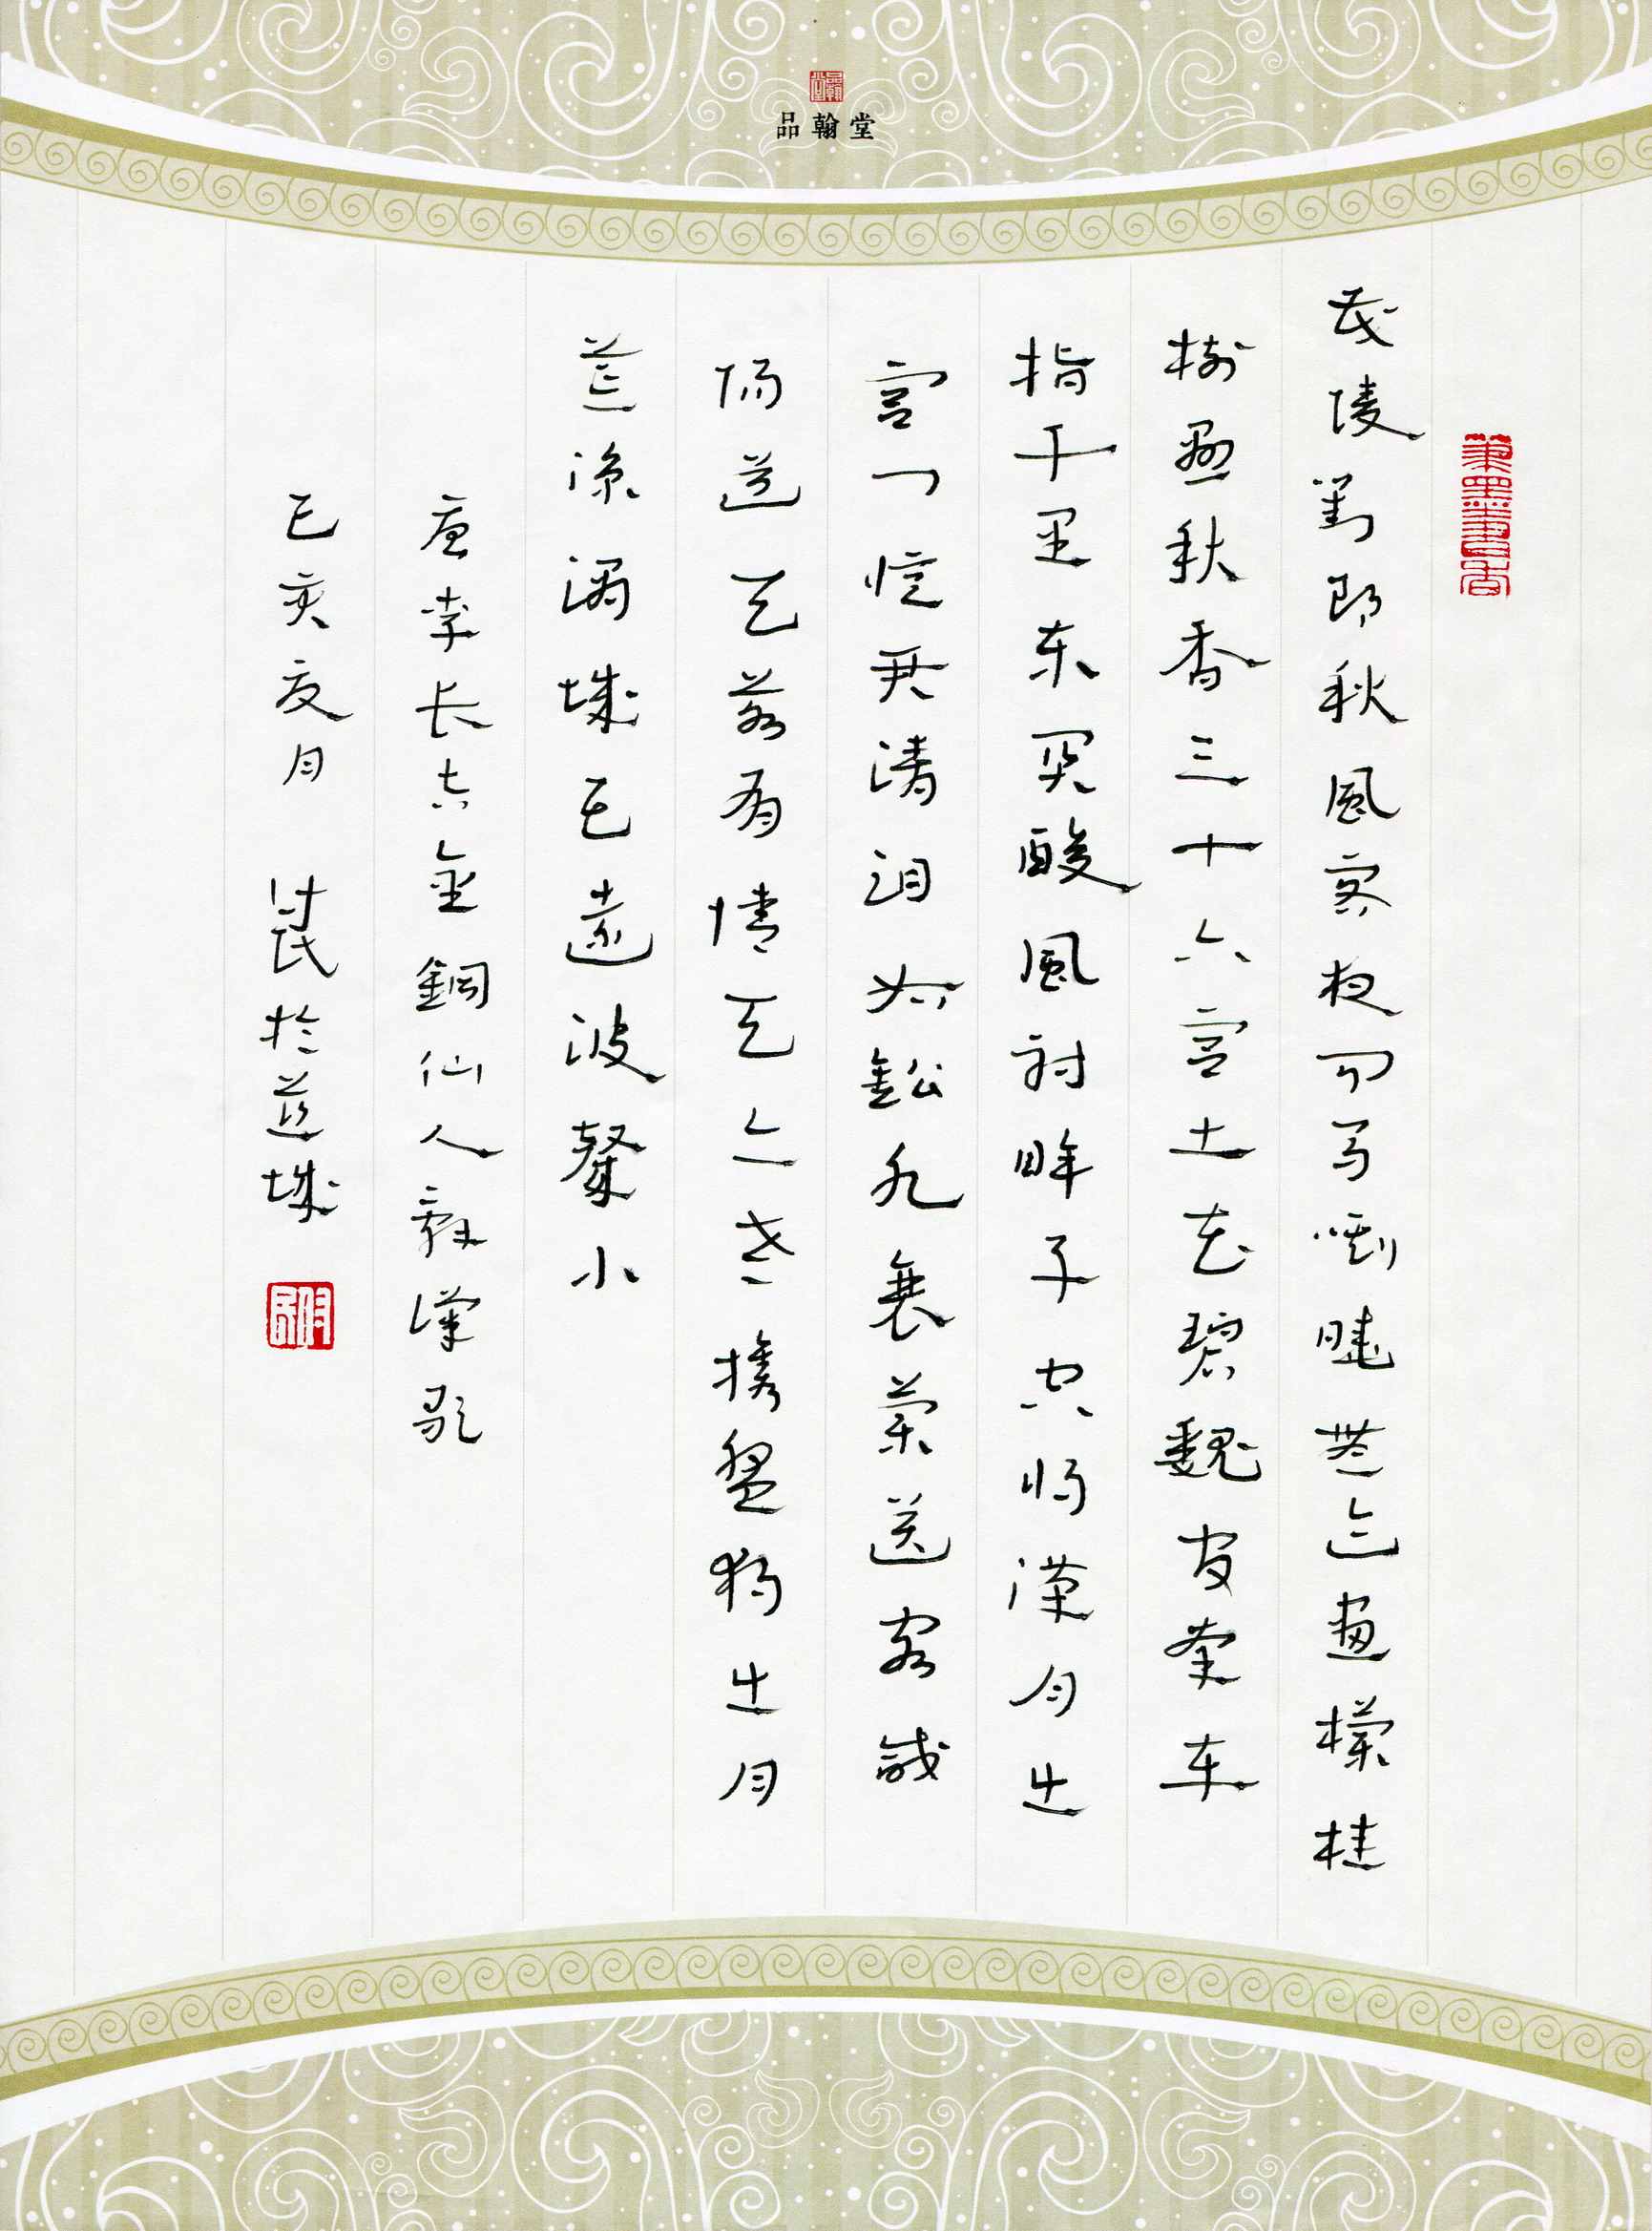 品翰堂
筆墨書香
茂陵劉郎秋風客夜聞馬嘶曉無迹畫欄桂
樹懸秋香三十六宮土花碧魏官牽車
指千里東關酸風射眸子空將漢月出
宮門憶君清泪如鉛水衰蘭送客咸
陽道天若有情天亦老攜盤獨出月
荒涼渭城已遠波聲小
唐李長吉金銅仙人辭漢歌
己亥夏月 付民於城